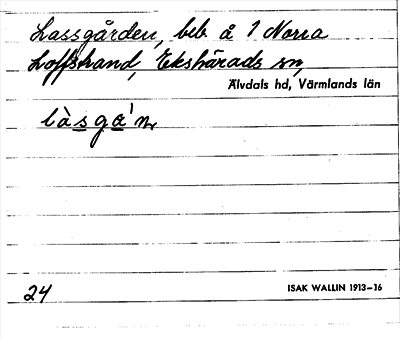 Lassgården, beb. å 1 Norra
Loffstrand, Ekshärads sn,
Älvdals hd, Värmlands län
làsgá'n,
24
ISAK WALLIN 1913–16